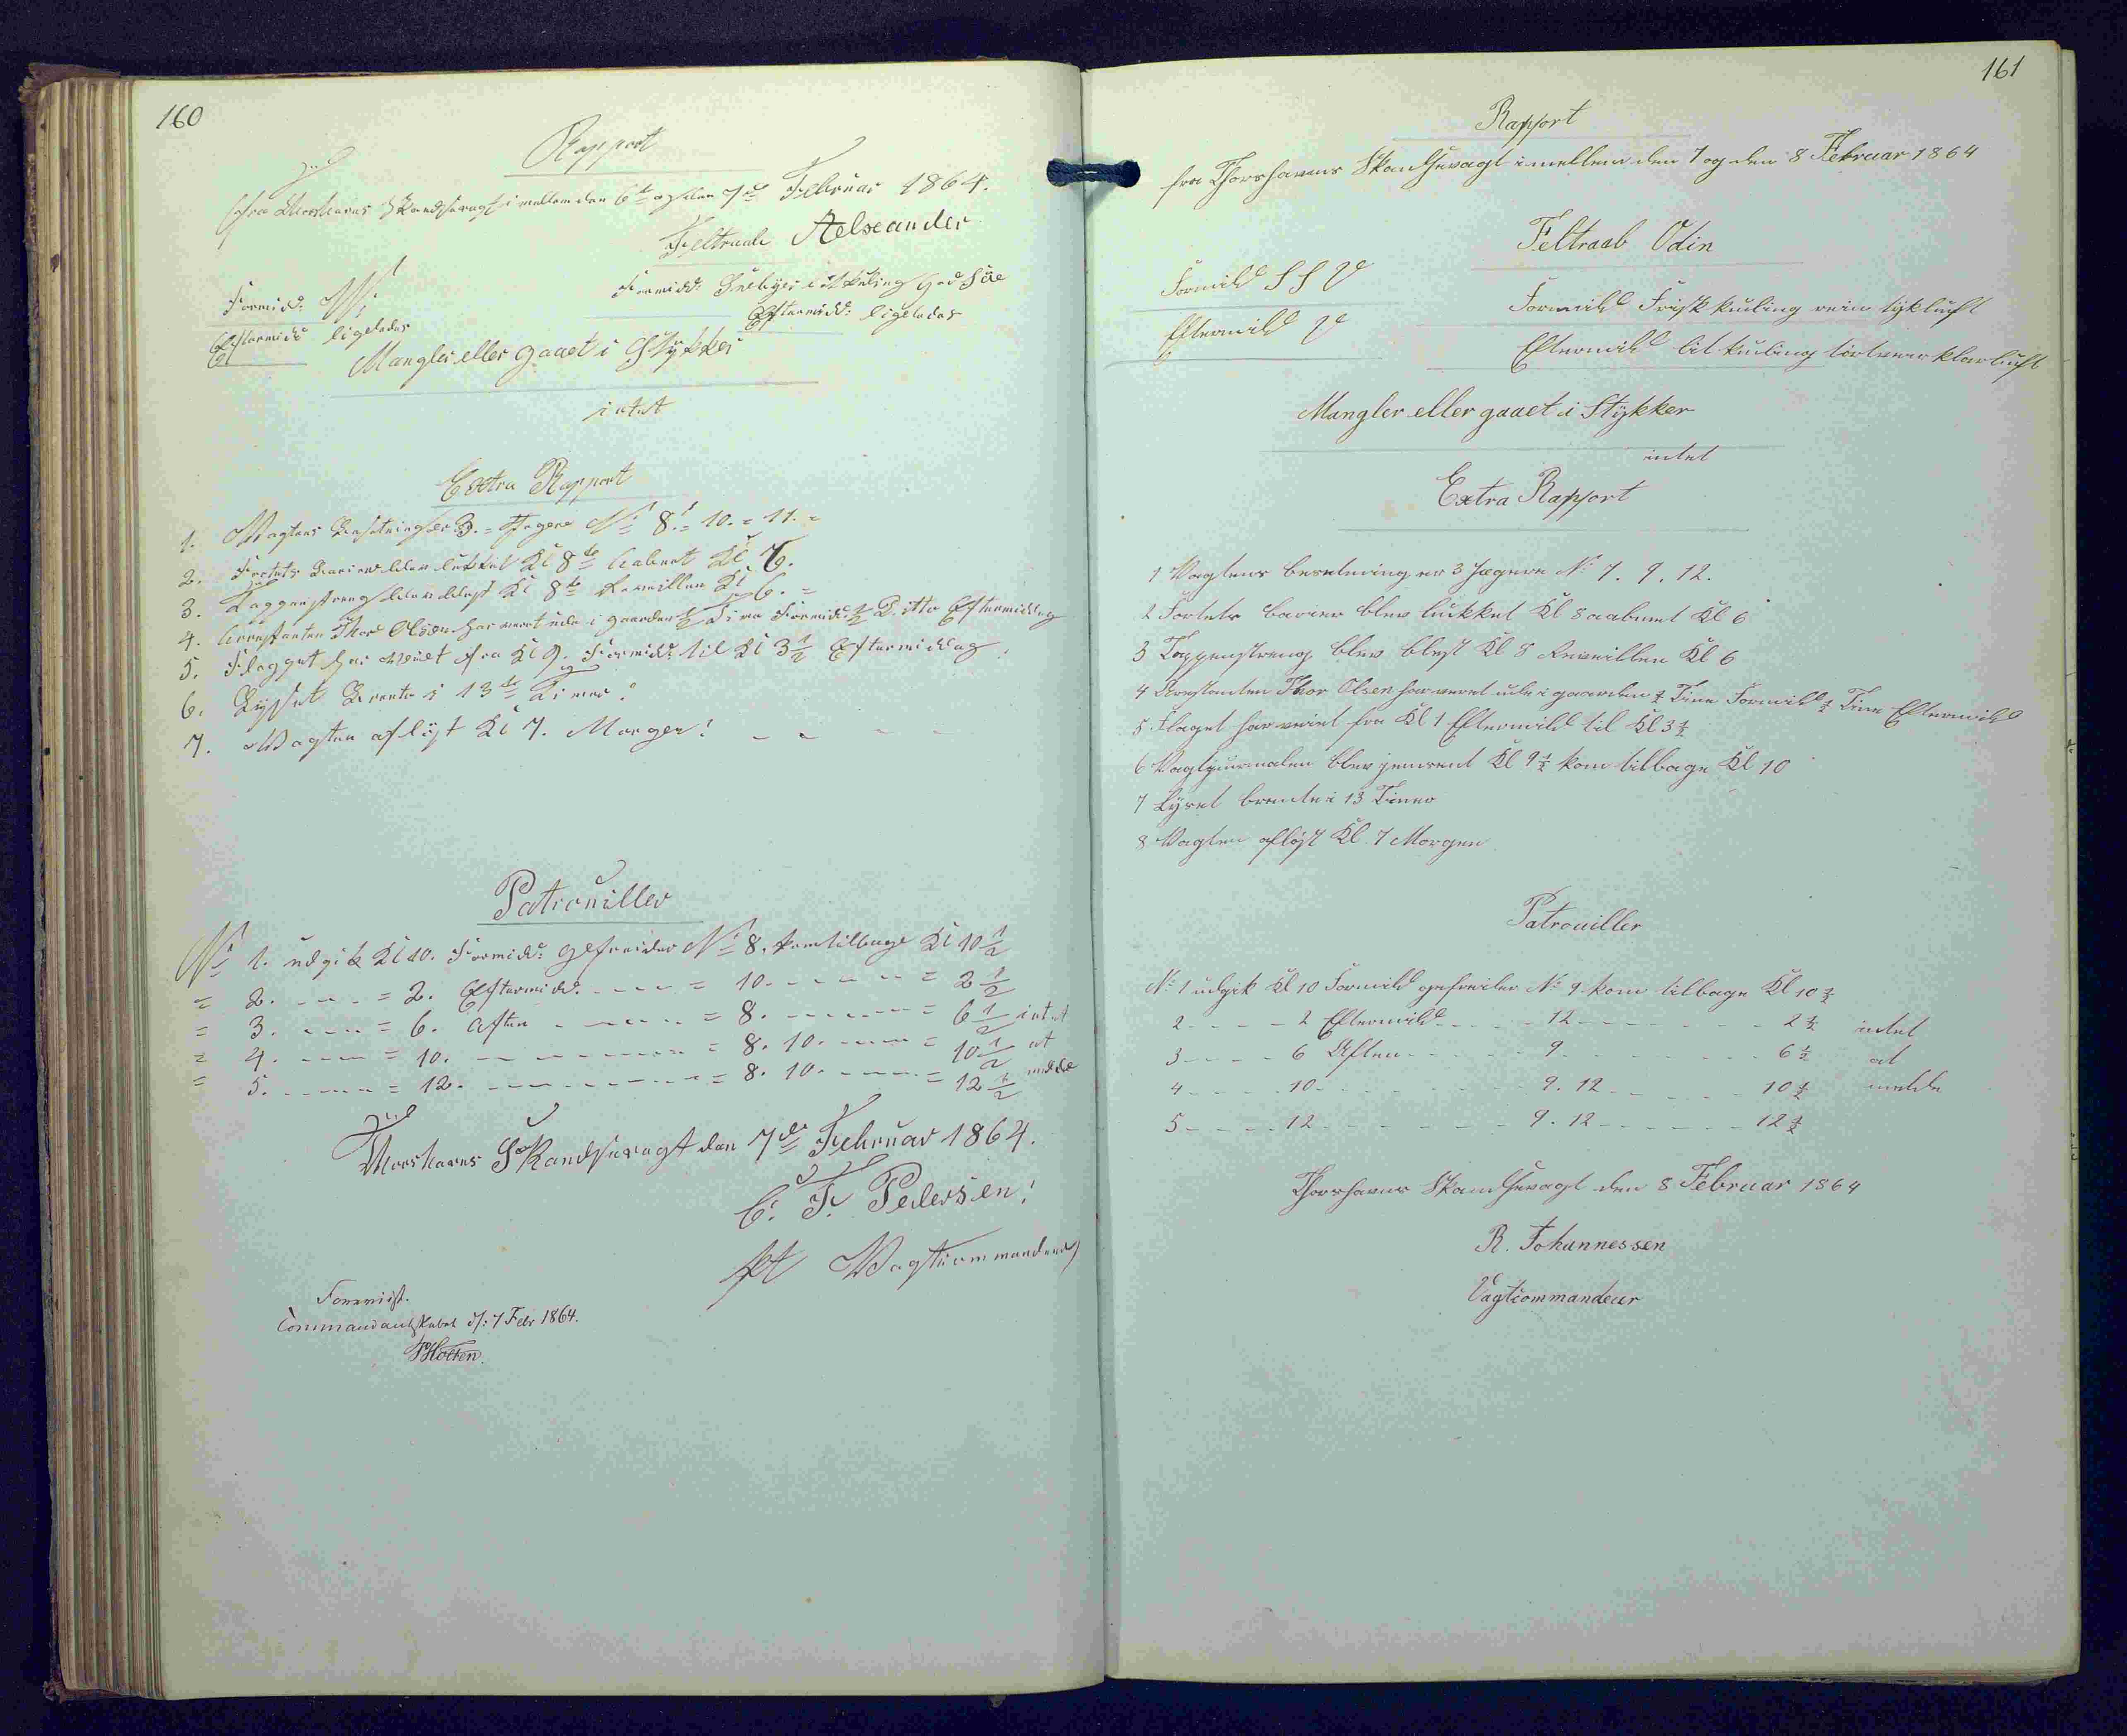 160
Rapport
fra Thorshavns Skandsevagt imellem den 6te og den 7de Februar 1864.
Feltraab Aelseander
Formidd:
Formidd: Snebyer lit Kuling god Süe
Eftermidd: ligeledes
Eftermidd ligeledes
Mangler eller gaaet i Stykker
intet
Extra Rapport
1. Vagtens Besetning er 3. Jægere No 8. 10. 11.
2. Fortets Barier blev lukket Kl 8te Aabnet Kl 6.
3. Tappenstreng blev blæst Kl 8te Reveillen Kl 6.
4. Arrestanten Thor Olsen har veret ude i gaarden ½ Time Formidd: ½ Ditto Eftermiddag
5. Flagget har veiet fra Kl 9. Formidd: til Kl 3½ Eftermiddag.
6. Lyset Brente i 13de Timer.
7. Vagten afløst Kl 7. Morgen!
Patrouiller
No 1. udgik Kl 10. Formidd: gefreider No 8. kom tilbage Kl 10½
= 2. - - - = 2. Eftermidd. - - - - = 10. - - - - - = 2½
= 3. - - - = 6. Aften - - - - - = 8. - - - - - - = 6½ intet
= 4. - - - = 10. - - - - - - - - = 8. 10. - - - - = 10½ at
= 5. - - - = 12. - - - - - - - - = 8. 10. - - - - = 12½ melde
Thorshavns Skandsevagt den 7de Februar 1864.
C. F. Pedersen!
pt Vagtcommandeur
Foreviist.
Commandantskabet d: 7 Febr 1864.
HHolten.
161
Rapport
fra Thorshavns Skandsevagt imellem den 7 og den 8 Februar 1864
Feltraab Odin
Formidd S S V
Formidd Frisk kuling rein tykluft
Eftermidd V
Eftermidd lit kuling törtveir klar luft
Mangler eller gaaet i Stykker
intet
Extra Rapport
1 Vagtens besetning er 3 Jægere No 7. 9. 12.
2 Fortets barier blev lukket Kl 8 aabnet Kl 6
3 Tappenstreng blev blest Kl 8 Reveillen Kl 6
4 Arestanten Thor Olsen har veret ude i gaarden ½ Time Formidd ½ Time Eftermidd
5 Flaget har veiet fra Kl 1 Eftermidd til Kl 3½
6 Vagtjurnalen blev jemsent Kl 9½ kom tilbage Kl 10
7 Lÿset brente i 13 Timer
8 Vagten afløst Kl. 7 Morgen
Patrouiller
No 1 udgik Kl 10 Formidd gefreiter No 9 kom tilbage Kl 10½
2 - - - - 2 Eftermidd - - - - 12 - - - - - - - 2½ intet
3 - - - - 6 Aften - - - - - 9 - - - - - - - - 6½ at
4 - - - - 10 - - - - - - - 9. 12 - - - - - - 10½ melde
5 - - - - 12 - - - - - - - 9. 12 - - - - - - 12½
Thorshavns Skandsevagt den 8 Februar 1864
R. Johannessen
Vagtcommandeur